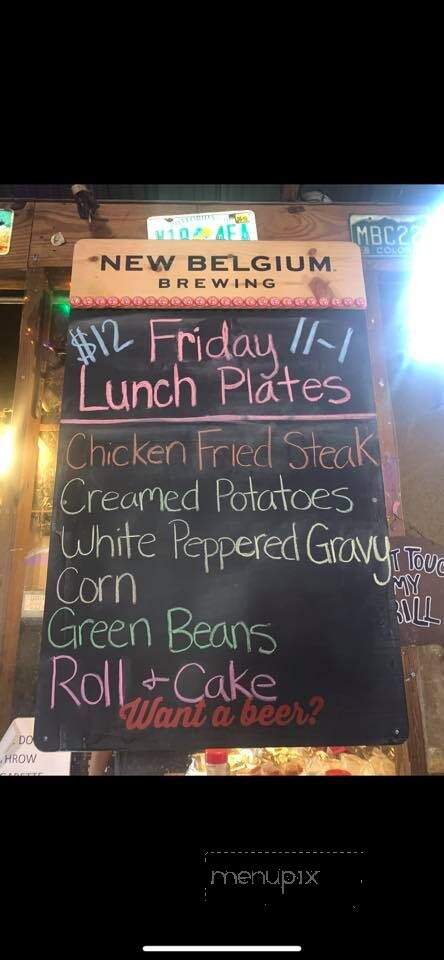 MBC22
8 COLO
NEW BELGIUM
BREWING
$12 Friday 11-1
Lunch Plates
Chicken Fried Steak
Creamed Potatoes
White Peppered Gravy
Corn
Green Beans
Roll + Cake
Want a beer?
T TOUC
MY
ILL
DO
HROW
menupix